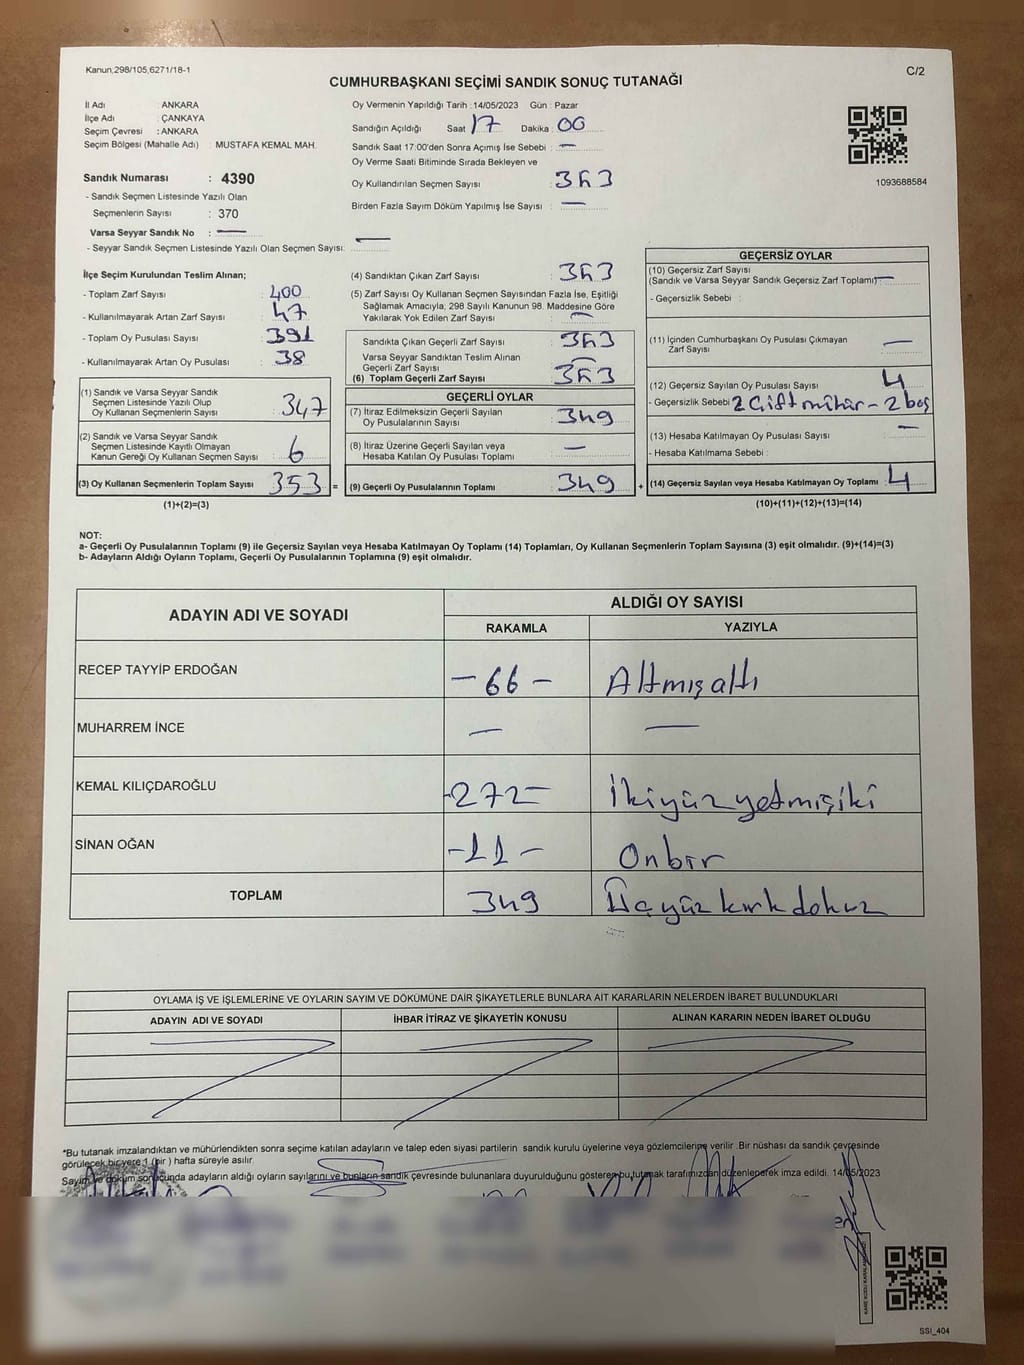 Kanun,298/105,6271/18-1
C/2
CUMHURBAŞKANI SEÇİMİ SANDIK SONUÇ TUTANAĞI
İl Adı : ANKARA
İlçe Adı : ÇANKAYA
Seçim Çevresi : ANKARA
Seçim Bölgesi (Mahalle Adı) : MUSTAFA KEMAL MAH.
Sandık Numarası : 4390
- Sandık Seçmen Listesinde Yazılı Olan
Seçmenlerin Sayısı : 370
Varsa Seyyar Sandık No : —
- Seyyar Sandık Seçmen Listesinde Yazılı Olan Seçmen Sayısı: —
Oy Vermenin Yapıldığı Tarih :14/05/2023 Gün : Pazar
Sandığın Açıldığı Saat 17 Dakika : 00
Sandık Saat 17:00'den Sonra Açımış İse Sebebi : —
Oy Verme Saati Bitiminde Sırada Bekleyen ve
Oy Kullandırılan Seçmen Sayısı : 353
Birden Fazla Sayım Döküm Yapılmış İse Sayısı : —
1093688584
İlçe Seçim Kurulundan Teslim Alınan;
- Toplam Zarf Sayısı : 400
- Kullanılmayarak Artan Zarf Sayısı : 47
- Toplam Oy Pusulası Sayısı : 391
- Kullanılmayarak Artan Oy Pusulası : 38
(1) Sandık ve Varsa Seyyar Sandık
Seçmen Listesinde Yazılı Olup
Oy Kullanan Seçmenlerin Sayısı : 347
(2) Sandık ve Varsa Seyyar Sandık
Seçmen Listesinde Kayıtlı Olmayan
Kanun Gereği Oy Kullanan Seçmen Sayısı : 6
(3) Oy Kullanan Seçmenlerin Toplam Sayısı : 353 =
(1)+(2)=(3)
(4) Sandıktan Çıkan Zarf Sayısı : 353
(5) Zarf Sayısı Oy Kullanan Seçmen Sayısından Fazla İse, Eşitliği
Sağlamak Amacıyla; 298 Sayılı Kanunun 98. Maddesine Göre
Yakılarak Yok Edilen Zarf Sayısı : —
Sandıkta Çıkan Geçerli Zarf Sayısı : 353
Varsa Seyyar Sandıktan Teslim Alınan
Geçerli Zarf Sayısı : —
(6) Toplam Geçerli Zarf Sayısı : 353
GEÇERLİ OYLAR
(7) İtiraz Edilmeksizin Geçerli Sayılan
Oy Pusulalarının Sayısı : 349
(8) İtiraz Üzerine Geçerli Sayılan veya
Hesaba Katılan Oy Pusulası Toplamı : —
(9) Geçerli Oy Pusulalarının Toplamı : 349 +
GEÇERSİZ OYLAR
(10) Geçersiz Zarf Sayısı
(Sandık ve Varsa Seyyar Sandık Geçersiz Zarf Toplamı) —
- Geçersizlik Sebebi :
(11) İçinden Cumhurbaşkanı Oy Pusulası Çıkmayan
Zarf Sayısı : —
(12) Geçersiz Sayılan Oy Pusulası Sayısı : 4
- Geçersizlik Sebebi : 2 Çift mühür - 2 boş
(13) Hesaba Katılmayan Oy Pusulası Sayısı : —
- Hesaba Katılmama Sebebi :
(14) Geçersiz Sayılan veya Hesaba Katılmayan Oy Toplamı : 4
(10)+(11)+(12)+(13)=(14)
NOT:
a- Geçerli Oy Pusulalarının Toplamı (9) ile Geçersiz Sayılan veya Hesaba Katılmayan Oy Toplamı (14) Toplamları, Oy Kullanan Seçmenlerin Toplam Sayısına (3) eşit olmalıdır. (9)+(14)=(3)
b- Adayların Aldığı Oyların Toplamı, Geçerli Oy Pusulalarının Toplamına (9) eşit olmalıdır.
ADAYIN ADI VE SOYADI
ALDIĞI OY SAYISI
RAKAMLA YAZIYLA
RECEP TAYYİP ERDOĞAN -66- Altmışaltı
MUHARREM İNCE — —
KEMAL KILIÇDAROĞLU -272- İkiyüzyetmişiki
SİNAN OĞAN -11- Onbir
TOPLAM 349 Üçyüzkırkdokuz
OYLAMA İŞ VE İŞLEMLERİNE VE OYLARIN SAYIM VE DÖKÜMÜNE DAİR ŞİKAYETLERLE BUNLARA AİT KARARLARIN NELERDEN İBARET BULUNDUKLARI
ADAYIN ADI VE SOYADI İHBAR İTİRAZ VE ŞİKAYETİN KONUSU ALINAN KARARIN NEDEN İBARET OLDUĞU
*Bu tutanak imzalandıktan ve mühürlendikten sonra seçime katılan adayların ve talep eden siyasi partilerin sandık kurulu üyelerine veya gözlemcilerine verilir .Bir nüshası da sandık çevresinde
görülecek bir yere 1 (bir ) hafta süreyle asılır.
Sayım ve döküm sonucunda adayların aldığı oyların sayılarını ve bunların sandık çevresinde bulunanlara duyurulduğunu gösteren bu tutanak tarafımızdan düzenlenerek imza edildi. 14/05/2023
SSI_404